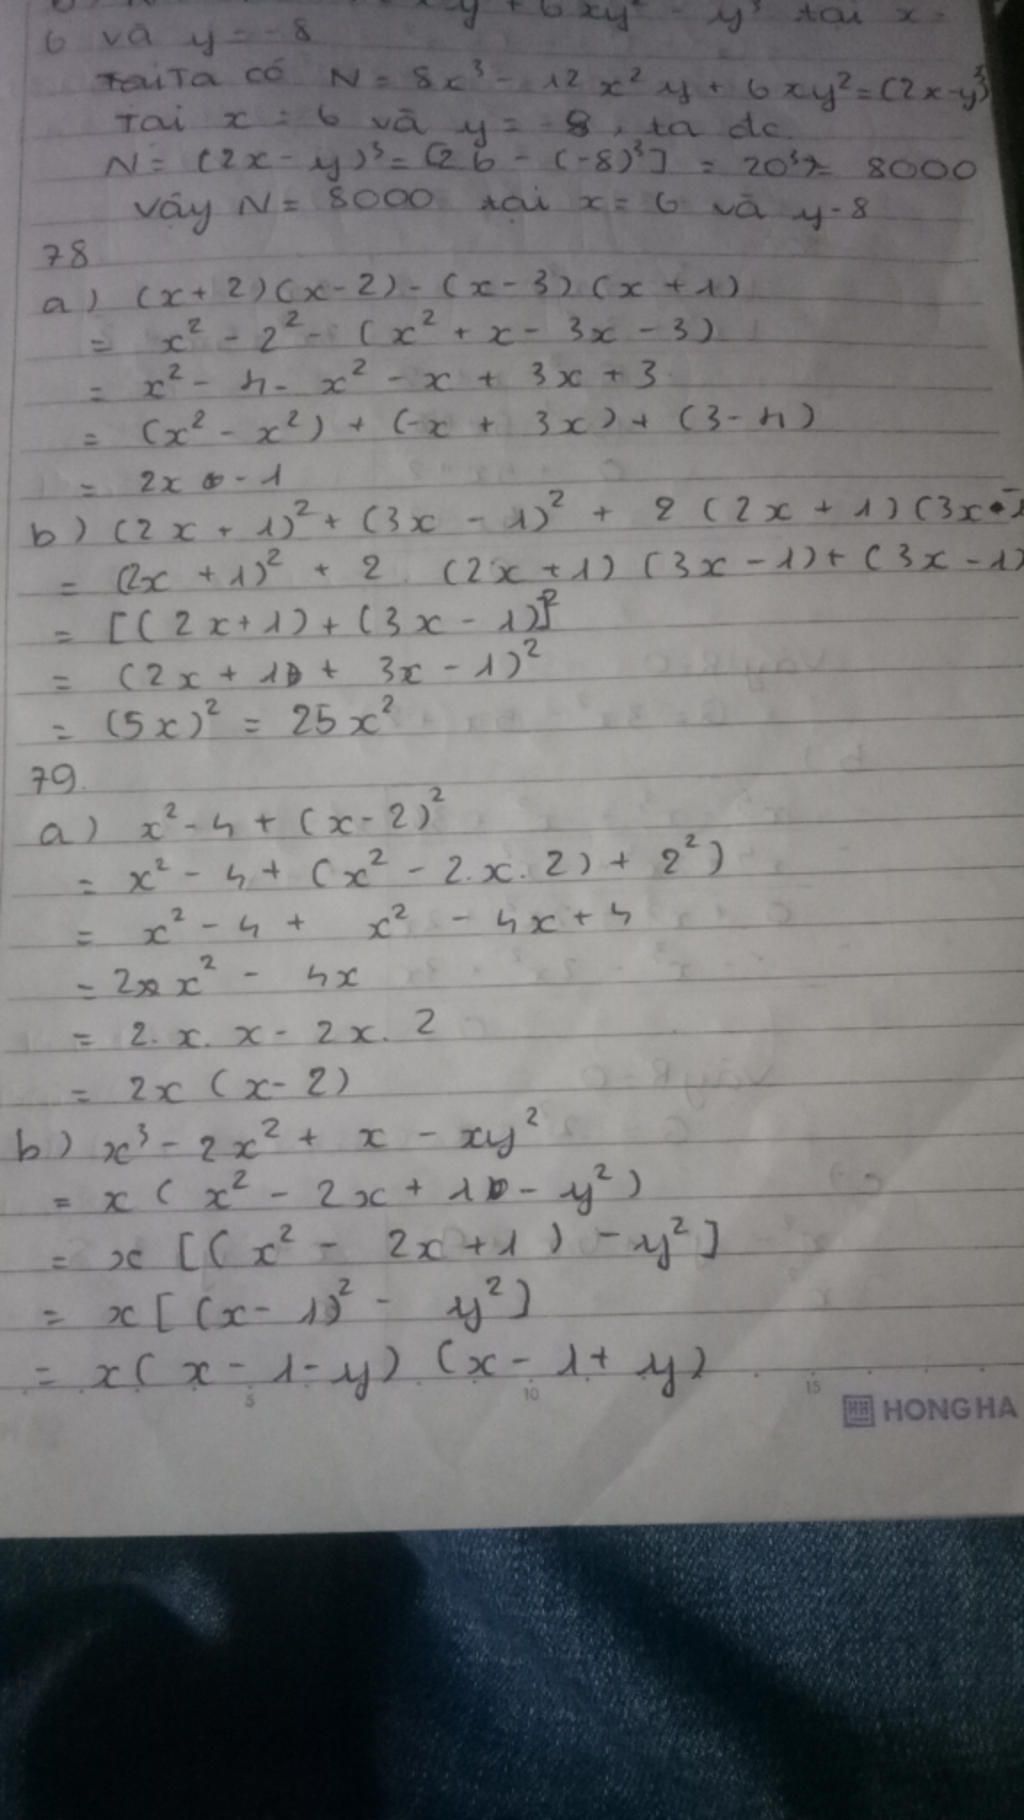 y + 6xy² - y³ tại x =
6 và y = -8
Ta có N = 8x³ - 12x²y + 6xy² = (2x-y)³
Tại x = 6 và y = -8, ta dc
N = (2x - y)³ = [2 6 - (-8)³] = 20³ = 8000
Vậy N = 8000 tại x = 6 và y - 8
78
a) (x+2)(x-2) - (x-3)(x+1)
= x² - 2² - (x² + x - 3x - 3)
= x² - 4 - x² - x + 3x + 3
= (x² - x²) + (-x + 3x) + (3-4)
= 2x - 1
b) (2x + 1)² + (3x - 1)² + 2(2x + 1)(3x - 1
= (2x + 1)² + 2. (2x + 1)(3x - 1) + (3x - 1)
= [(2x+1) + (3x - 1)]²
= (2x + 1 + 3x - 1)²
= (5x)² = 25x²
79.
a) x² - 4 + (x - 2)²
= x² - 4 + (x² - 2.x.2) + 2²)
= x² - 4 + x² - 4x + 4
= 2x² - 4x
= 2.x.x - 2x.2
= 2x(x - 2)
b) x³ - 2x² + x - xy²
= x(x² - 2x + 1 - y²)
= x[(x² - 2x + 1) - y²]
= x[(x - 1)² - y²]
= x(x - 1 - y)(x - 1 + y)
5 10 15
HH HONG HA